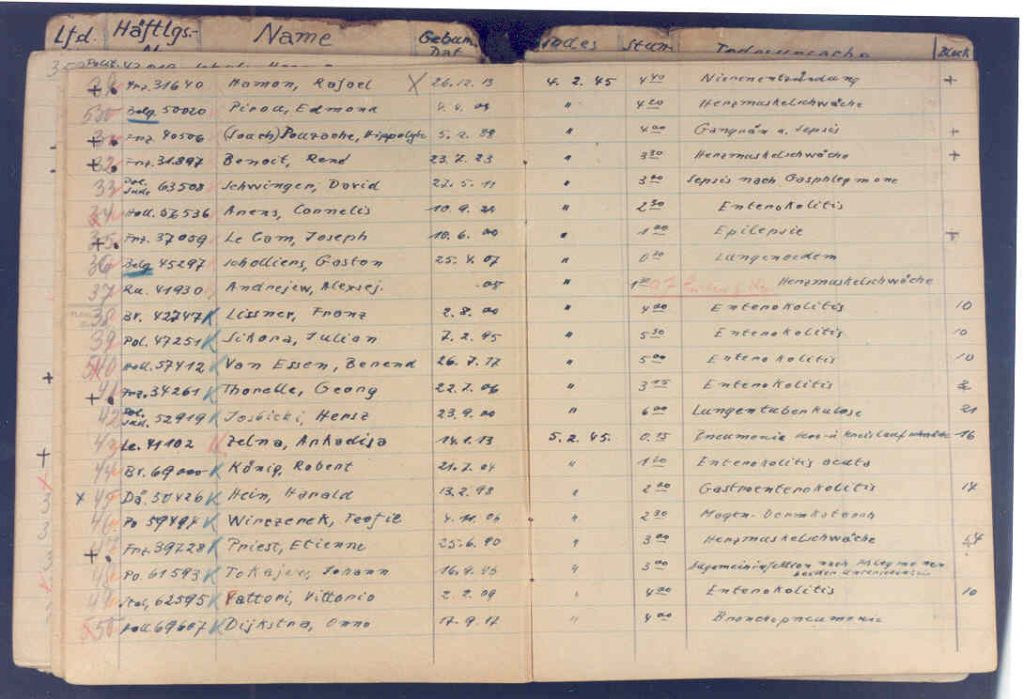 Lfd. Häftlgs.- Name Geburt. Dat. Todes Stun. Todesursache Block
Frz. 31640 Hamon, Rafael X 26.12.13 4.2.45 4 40 Nierenentzündung +
530 Belg. 50020 Edmond 4.4.09 " 4 20 Herzmuskelschwäche
Frz. 40506 Hippolyte 5.2.88 " 4 00 Gangrän u. Sepsis +
32 Frz. 31897 Benoit, René 23.7.23 " 3 30 Herzmuskelschwäche +
33 Pol. Jud. 63508 Schwinger, David 27.5.11 " 3 00 Sepsis nach Gasphlegmone
34 Holl. Arens, Cornelis " 2 30 Enterokolitis
35 Frz. 37059 Le Gam, Joseph 10.6.00 " 1 00 Epilepsie +
36 Belg. 45297 Scholliens, Gaston 25.4.07 " 0 30 Lungenoedem
37 Ru. 41930 Andrejew, Alexsej. 05 " Herzmuskelschwäche
38 Br. 42747 K Lissner, Franz 2.8.00 " 4 00 Enterokolitis 10
39 Pol. 47251 K Sikora, Julian 7.2.95 " 5 30 Enterokolitis 10
540 Holl. 57412 K Van Essen, Berend 26.7.17 " 5 00 Enterokolitis 10
41 Frz. 34261 K Thorelle, Georg 22.7.06 " 3 15 Enterokolitis 2
42 Pol. Jud. 52919 K Josbicki, Hersz 23.9.00 " 6 00 Lungentuberkulose 21
43 Le. 41102 K Zelna, Arkadija 14.1.13 5.2.45. 0.15 Pneumonie 16
44 Br. 69000 K König, Robert 21.7.04 " 1 20 Enterokolitis acuta
x 45 Dä. 50426 K Hein, Harald 13.2.98 " 2 00 Gastroenterokolitis 14
46 Po 59494 K Winczerek, Teofil 4.11.06 " 2 30 Magen-Darmkatarrh
47 Frz. 39728 K Priest, Etienne 25.6.90 " 3 00 Herzmuskelschwäche
48 Po. 61593 K Tokajew, Johann 16.9.95 " 3 00 Allgemeininfektion nach Phlegmonen beider
49 Ital. 62595 K Fattori, Vittorio 2.2.09 " 4 00 Enterokolitis 10
550 Holl. 69607 K Dijkstra, Onno 17.9.17 " 4 00 Bronchopneumonie